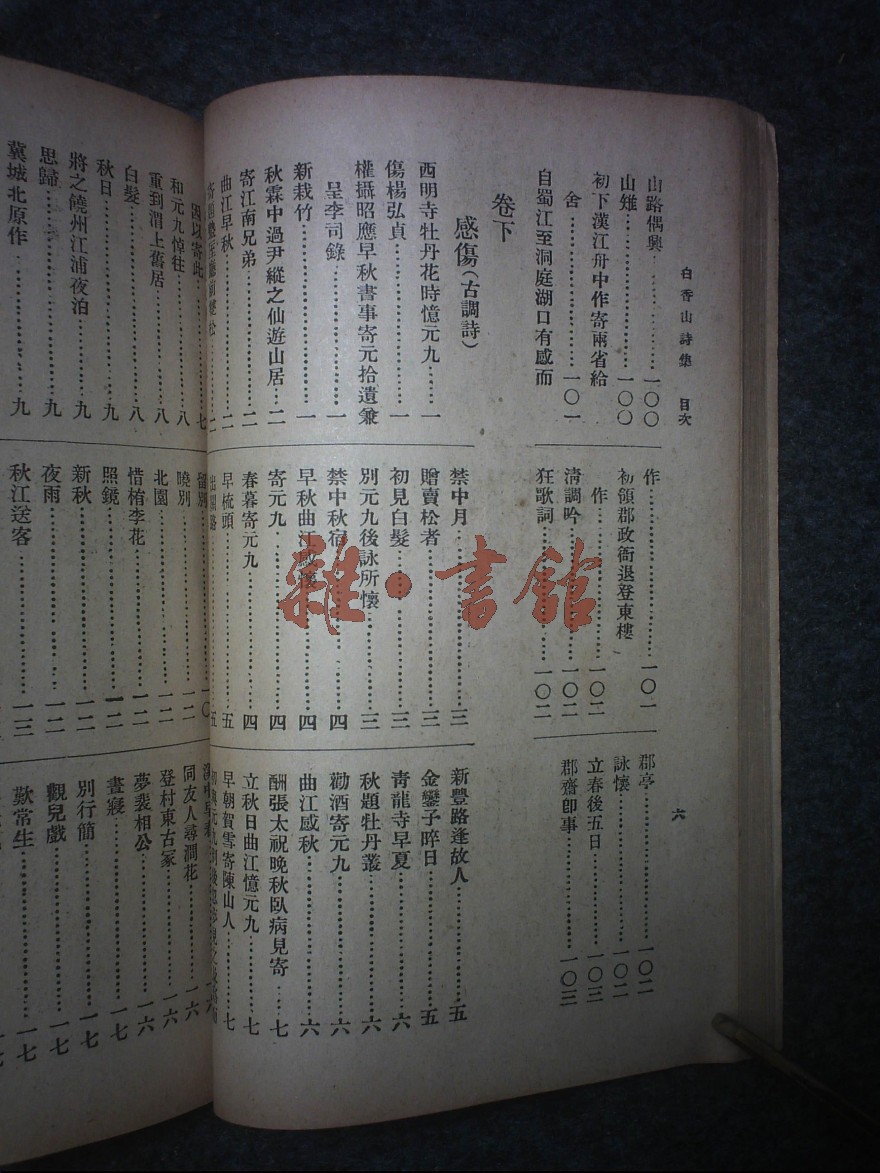 白香山詩集 目次
六
山路偶興……一〇〇
山雉……一〇〇
初下漢江舟中作寄兩省給
舍……一〇一
自蜀江至洞庭湖口有感而
作……一〇一
初領郡政衙退登東樓
作……一〇二
清調吟……一〇二
狂歌詞……一〇二
郡亭……一〇二
詠懷……一〇二
立春後五日……一〇三
郡齋卽事……一〇三
卷下
感傷(古調詩)
西明寺牡丹花時憶元九……一
傷楊弘貞……一
權攝昭應早秋書事寄元拾遺兼
呈李司錄……一
新栽竹……一
秋霖中過尹縱之仙遊山居……二
寄江南兄弟……二
曲江早秋……二
禁中月……三
贈賣松者……三
初見白髮……三
別元九後詠所懷……三
禁中秋宿……四
早秋曲江感懷……四
寄元九……四
春暮寄元九……四
早梳頭……五
出關路……五
新豐路逢故人……五
金鑾子晬日……五
靑龍寺早夏……六
秋題牡丹叢……六
勸酒寄元九……六
曲江感秋……六
酬張太祝晚秋臥病見寄……七
立秋日曲江憶元九……七
早朝賀雪寄陳山人……七
因以寄此……七
和元九悼往……八
重到渭上舊居……八
白髮……九
秋日……九
將之饒州江浦夜泊……九
思歸……九
冀城北原作……九
留別……一〇
曉別……一二
北園……一二
惜栯李花……一二
照鏡……一二
新秋……一二
夜雨……一二
秋江送客……一三
同友人尋澗花……一六
登村東古冢……一六
夢裴相公……一六
晝寢……一七
別行簡……一七
觀兒戲……一七
歎常生……一七
雜·書館